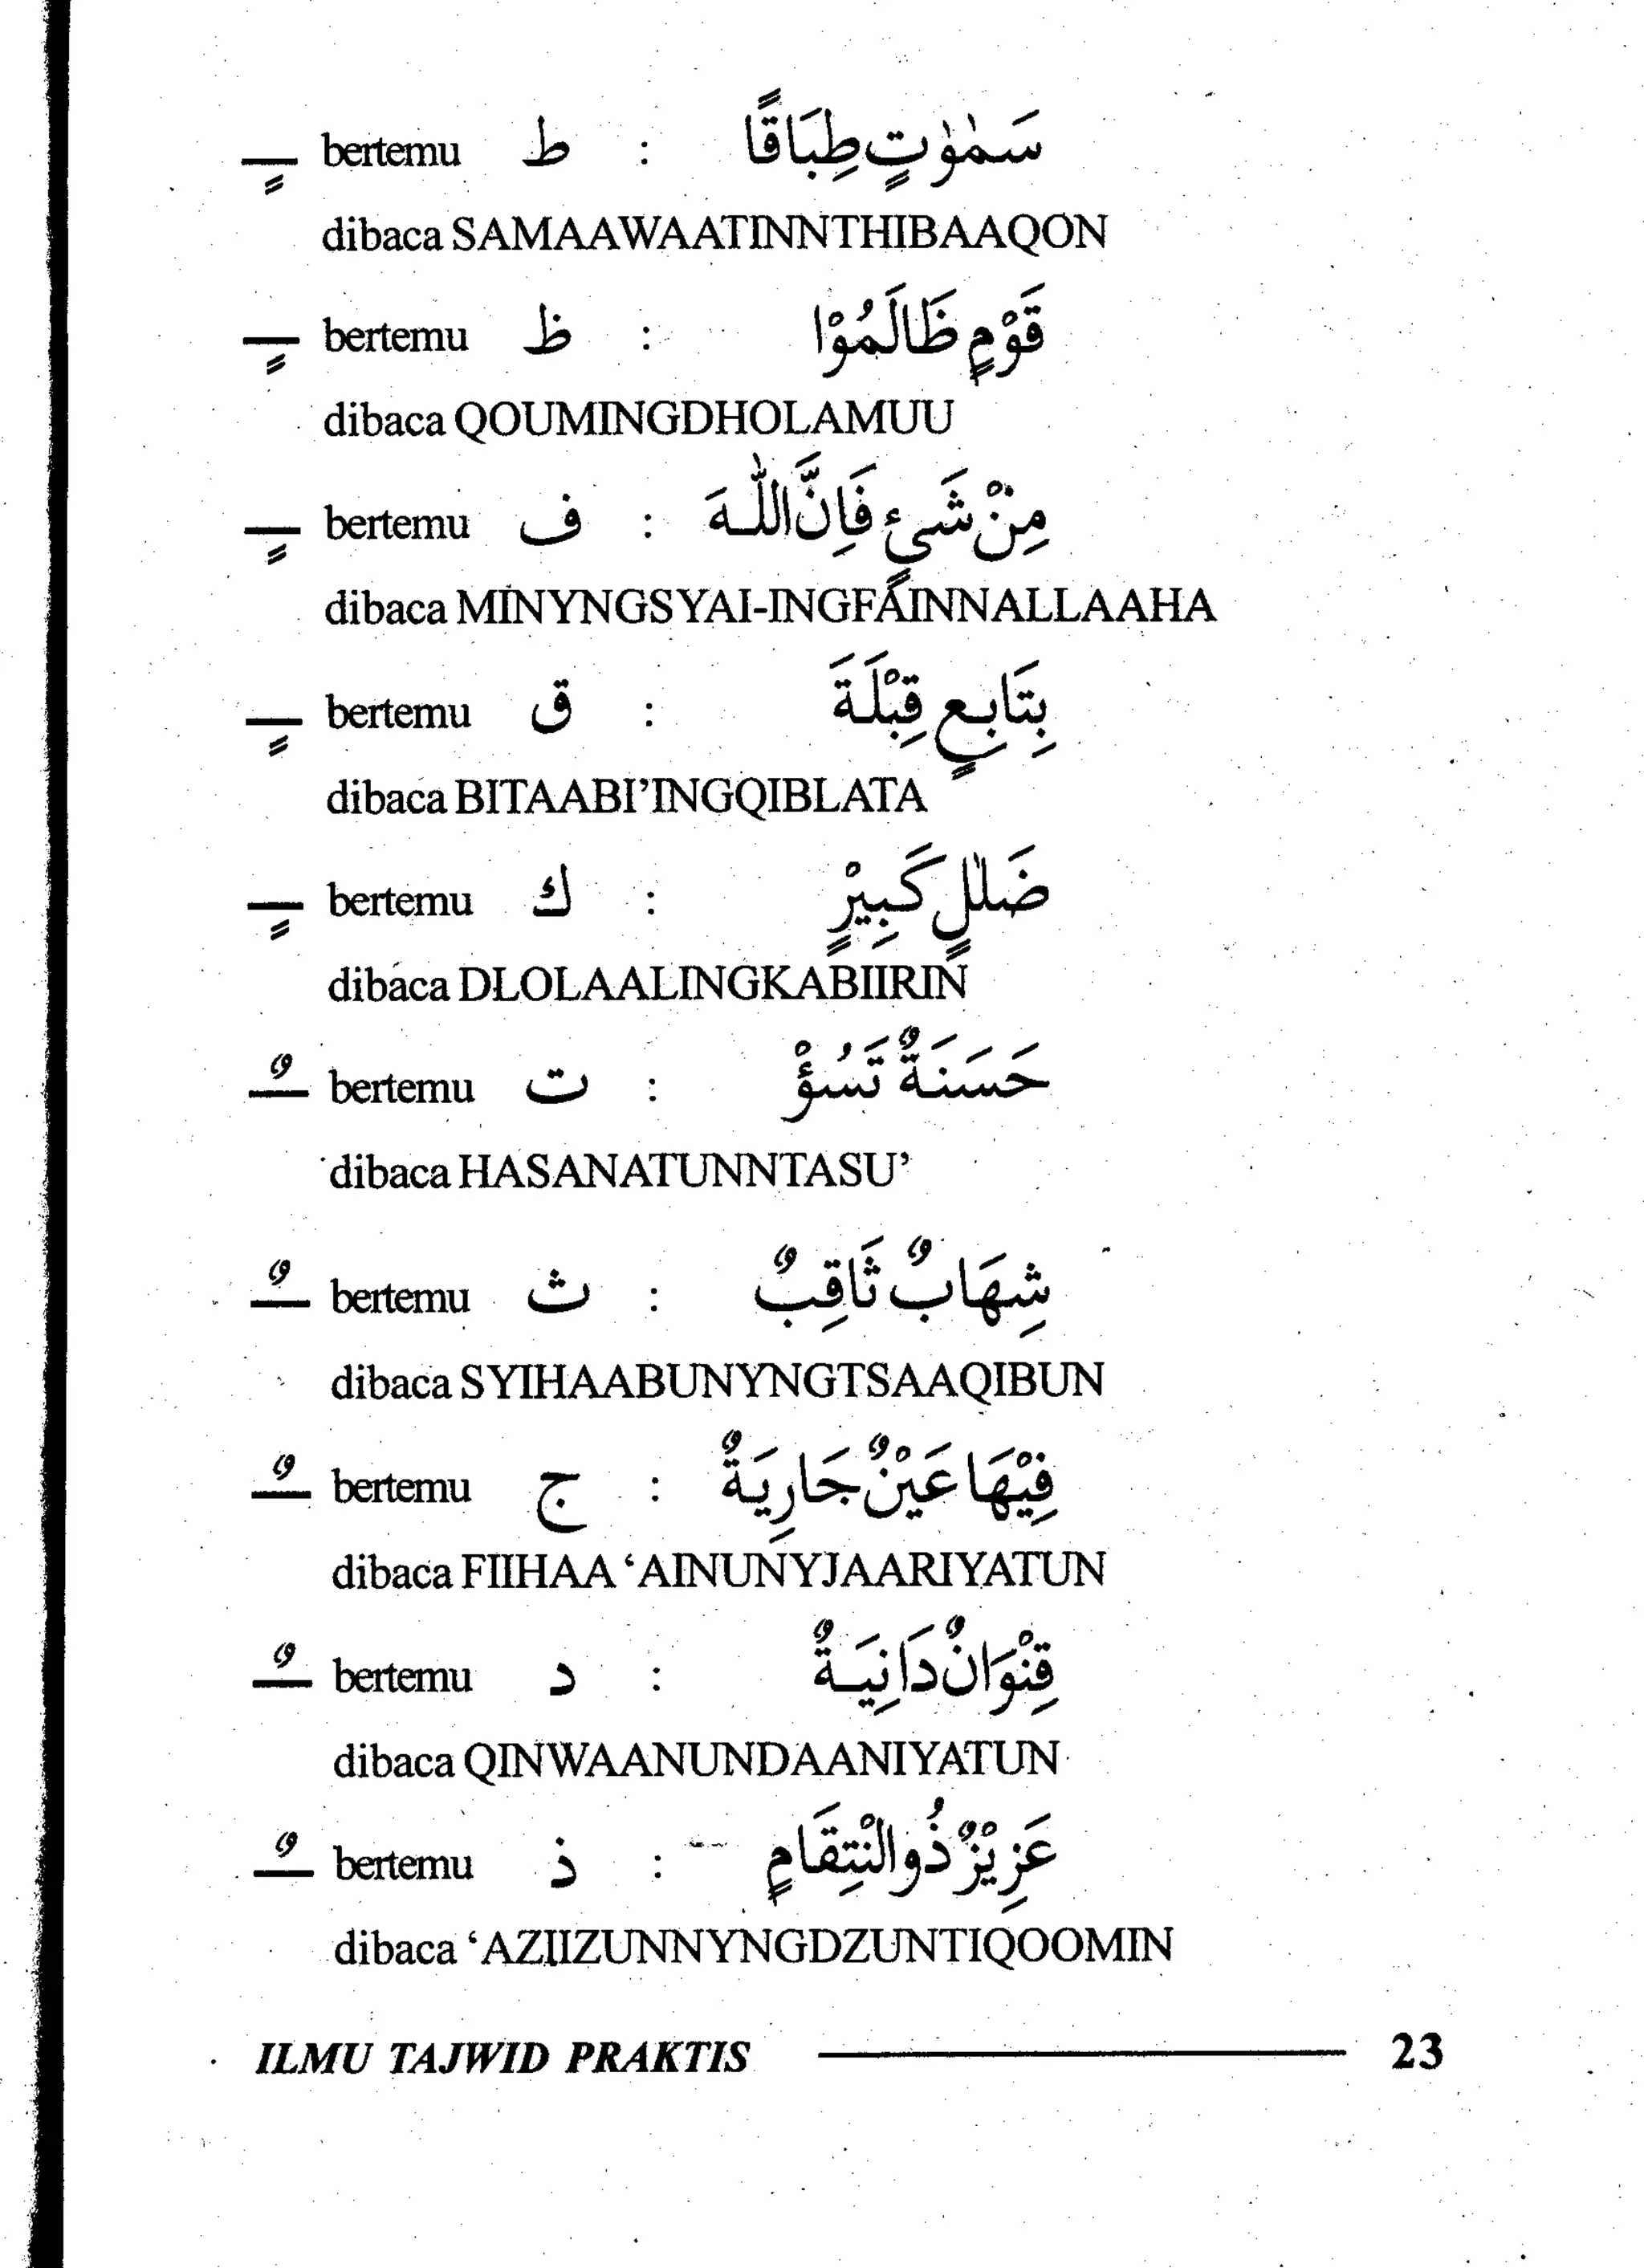 ـٍ bertemu ط : سَمٰوٰتٍ طِبَاقًا
dibaca SAMAAWAATINNTHIBAAQON
ـٍ bertemu ظ : قَوْمٍ ظَالَمُوْا
dibaca QOUMINGDHOLAMUU
ـٍ bertemu ف : مِنْ شَیْءٍ فَاِنَّ اللّٰهَ
dibaca MINYNGSYAI-INGFAINNALLAAHA
ـٍ bertemu ق : بِتَابِعٍ قِبْلَةَ
dibaca BITAABI’INGQIBLATA
ـٍ bertemu ك : ضَلٰلٍ كَبِيْرٍ
dibaca DLOLAALINGKABIIRIN
ـٌ bertemu ت : حَسَنَةٌ تَسُؤْ
dibaca HASANATUNNTASU’
ـٌ bertemu ث : شِهَابٌ ثَاقِبٌ
dibaca SYIHAABUNYNGTSAAQIBUN
ـٌ bertemu ج : فِيْهَا عَيْنٌ جَارِيَةٌ
dibaca FIIHAA ‘AINUNYJAARIYATUN
ـٌ bertemu د : قِنْوَانٌ دَانِيَةٌ
dibaca QINWAANUNDAANIYATUN
ـٌ bertemu ذ : عَزِيْزٌ ذُوالنْتِقَامٍ
dibaca ‘AZIIZUNNYNGDZUNTIQOOMIN
ILMU TAJWID PRAKTIS 23